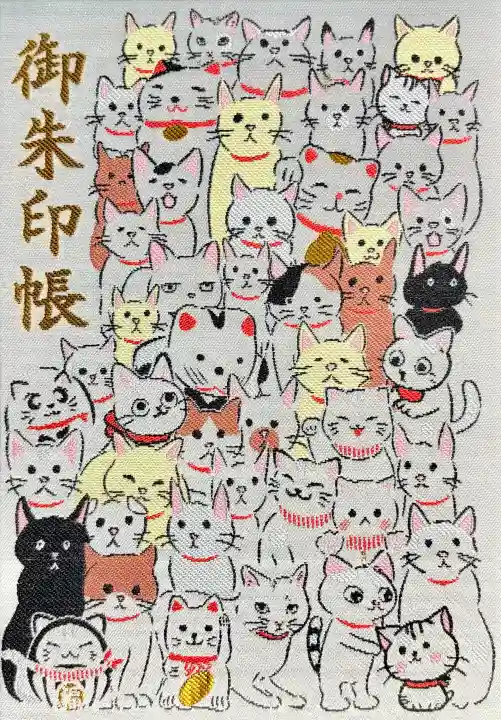 御朱印帳
福